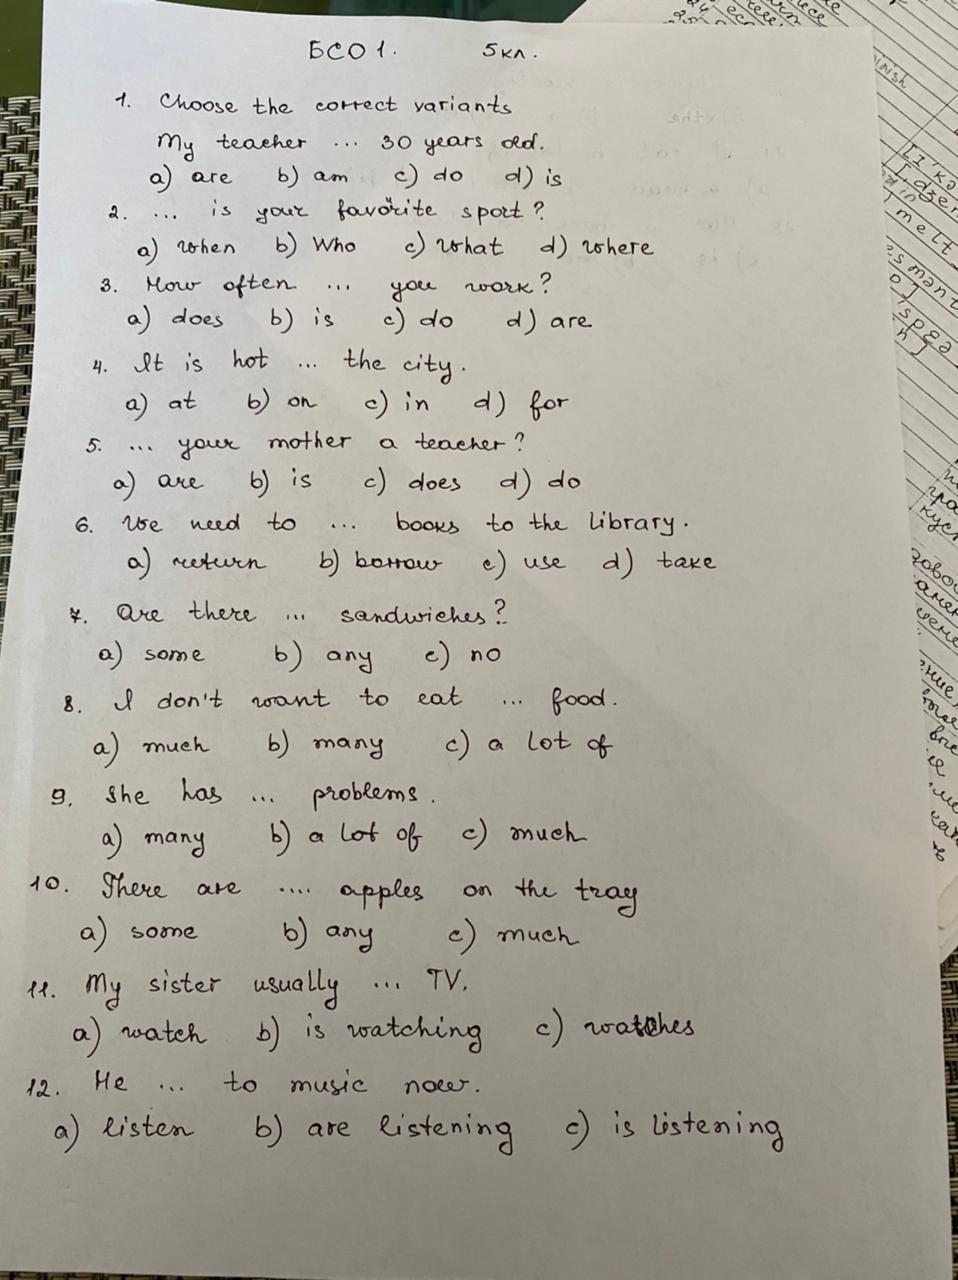 БСО 1. 5 кл.
1. Choose the correct variants
My teacher ... 30 years old.
a) are b) am c) do d) is
2. ... is your favorite sport?
a) when b) Who c) what d) where
3. How often ... you work?
a) does b) is c) do d) are
4. It is hot ... the city.
a) at b) on c) in d) for
5. ... your mother a teacher?
a) are b) is c) does d) do
6. We need to ... books to the library.
a) return b) borrow c) use d) take
7. Are there ... sandwiches?
a) some b) any c) no
8. I don't want to eat ... food.
a) much b) many c) a lot of
9. She has ... problems.
a) many b) a lot of c) much
10. There are .... apples on the tray
a) some b) any c) much
11. My sister usually ... TV.
a) watch b) is watching c) watches
12. He ... to music now.
a) listen b) are listening c) is listening
melt